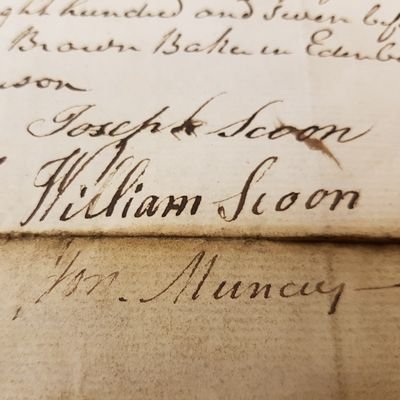 ght hundred and seven bef
Brown Baker in Edenb
son
Joseph Scoon
William Scoon
Jon. Muncey